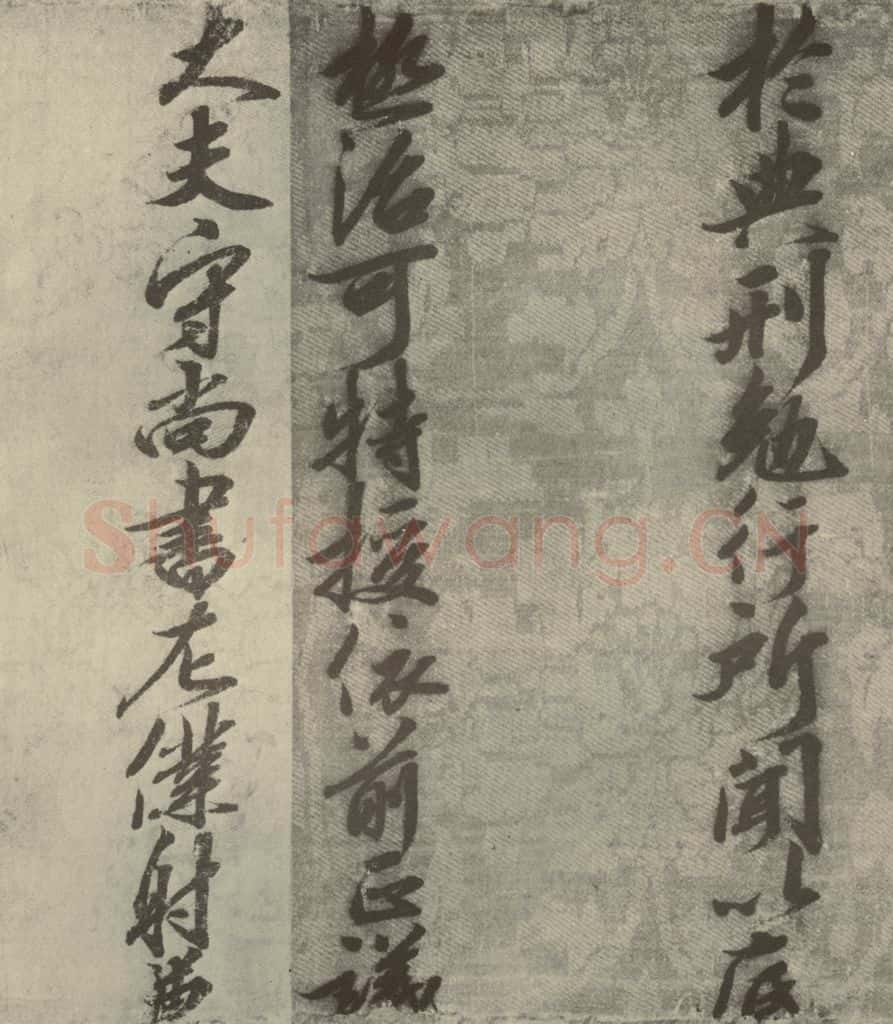 於典刑勉行所聞以底
極治可特授依前正議
大夫守尚書左僕射兼
Shufawang.CN